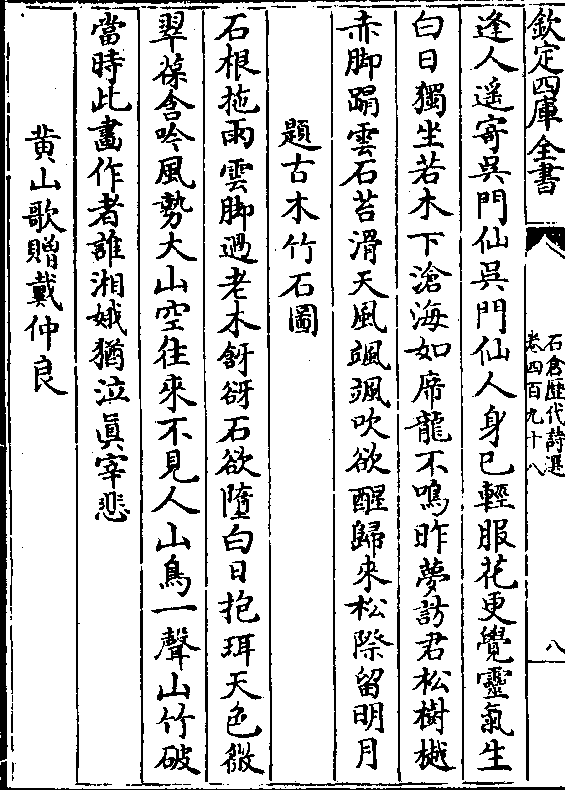 欽定四庫全書
石倉歷代詩選
卷四百九十八
八
逢人遥寄吳門仙吳門仙人身已輕服花更覺靈氣生
白日獨坐若木下滄海如席龍不鳴昨夢訪君松樹樾
赤脚蹋雲石苔滑天風颯颯吹欲醒歸來松際留明月
題古木竹石圖
石根拖雨雲脚過老木谺谺石欲墮白日抱珥天色微
翠葆含吟風勢大山空往來不見人山鳥一聲山竹破
當時此畵作者誰湘娥猶泣真宰悲
黄山歌贈戴仲良